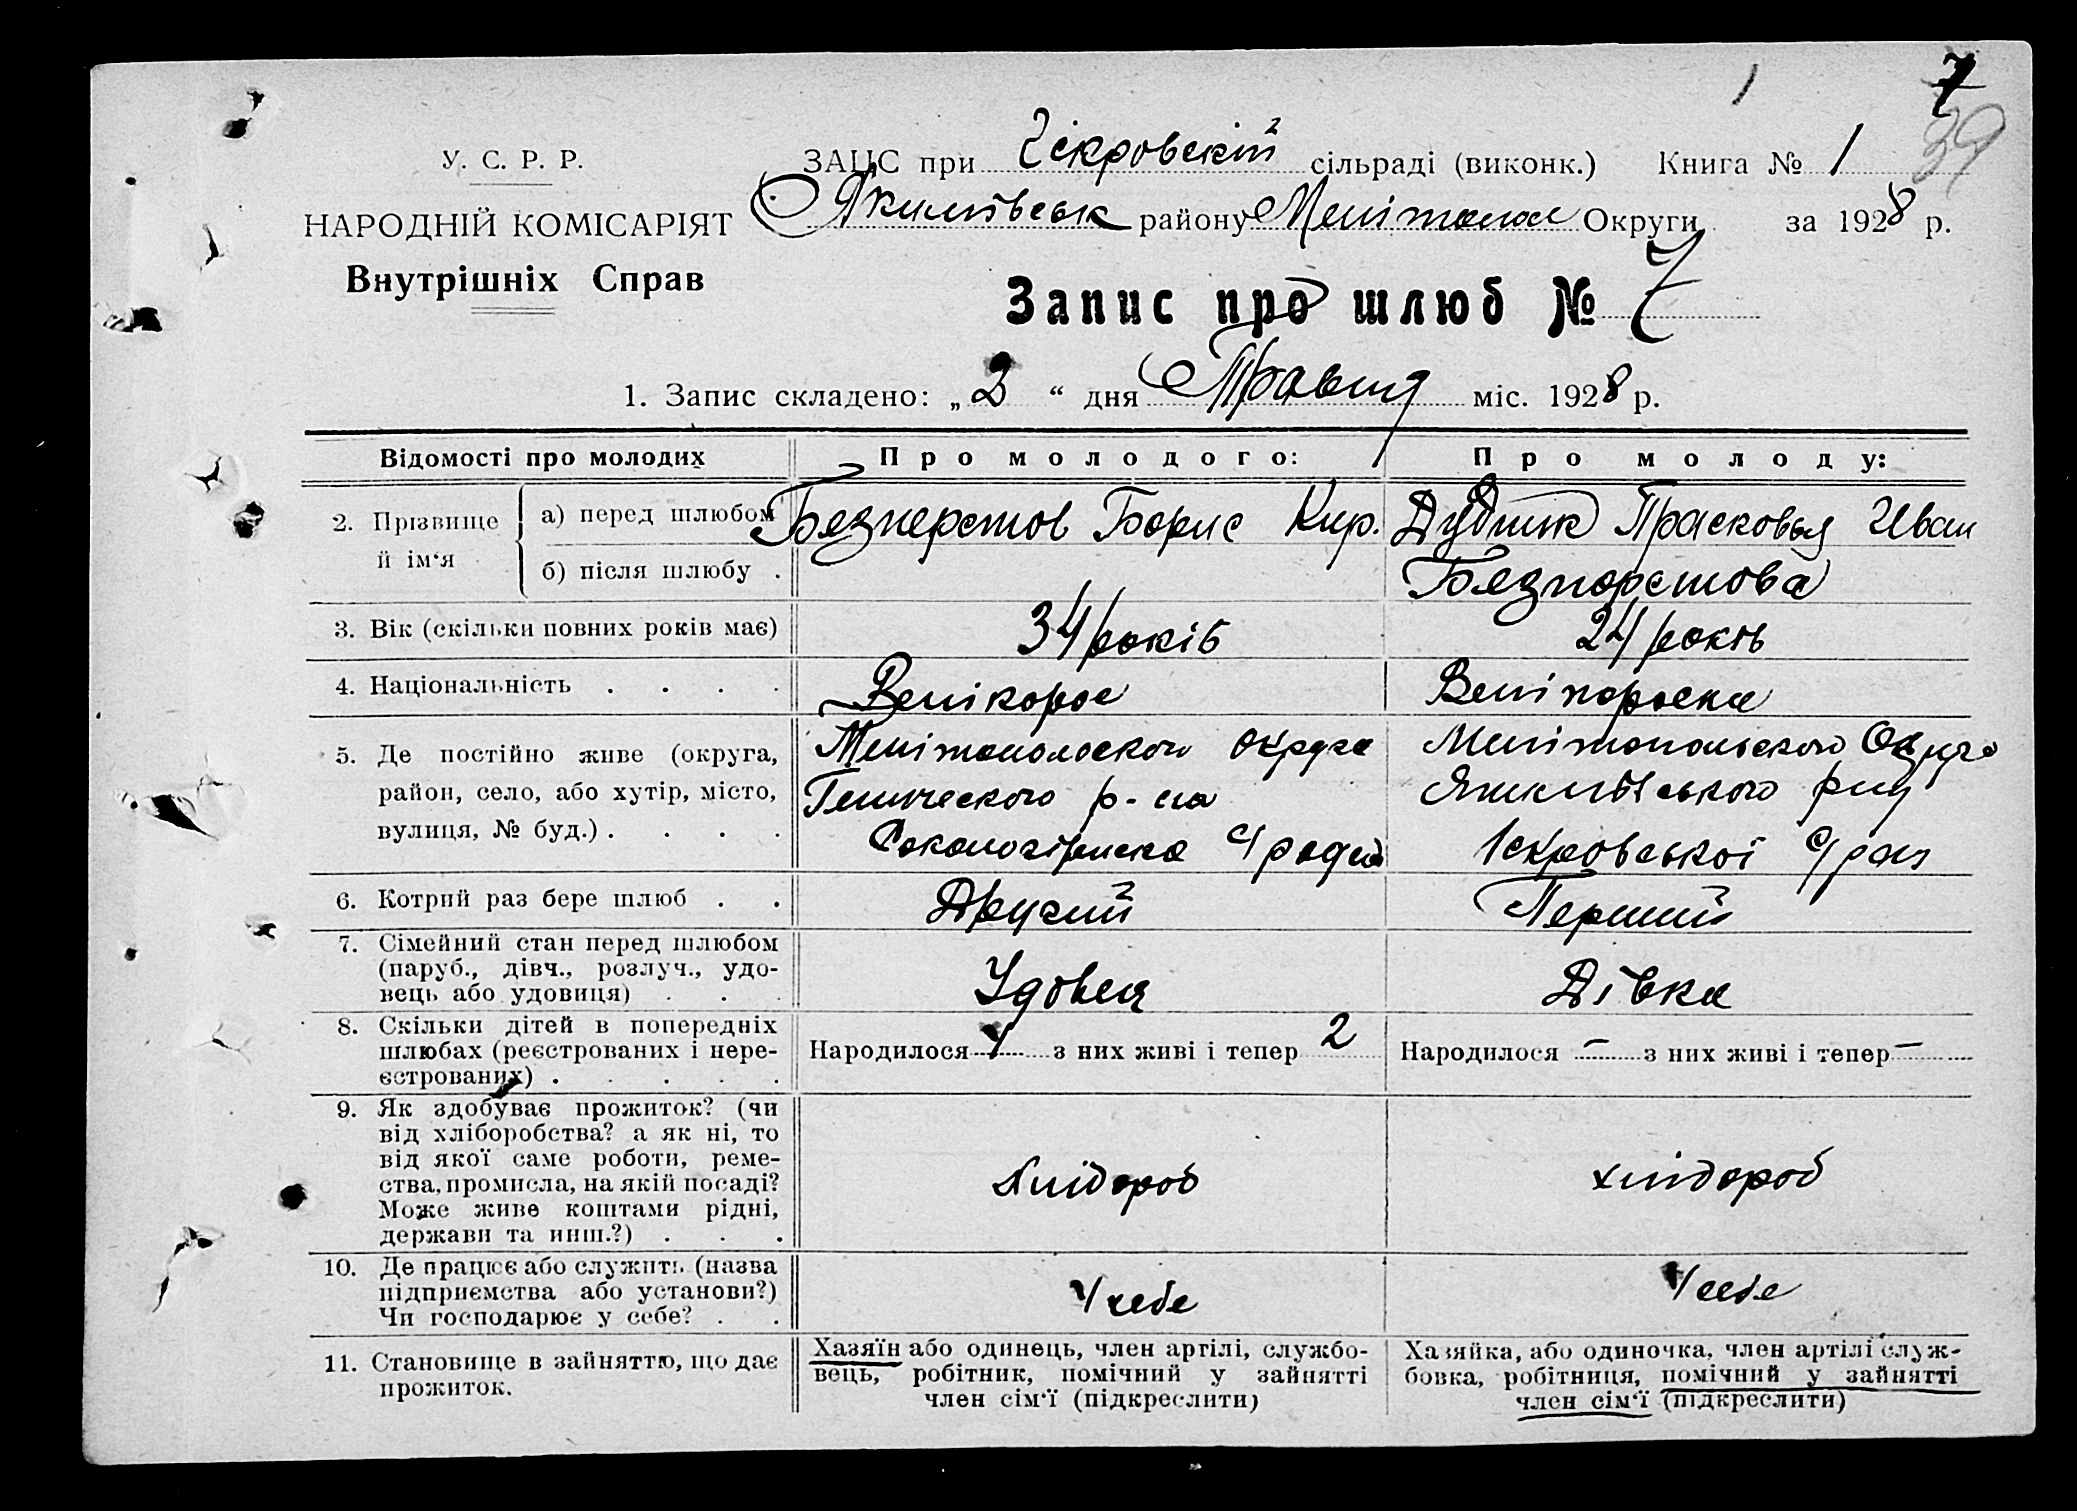 7
39
У. С. Р. Р.
ЗАЦС при Іскровскій сільраді (виконк.) Книга № 1
НАРОДНІЙ КОМІСАРІЯТ
Якимівськ району Мелітопол Округи за 1928 р.
Внутрішніх Справ
Запис про шлюб № 7
1. Запис складено: „ 2 “ дня Травня міс. 1928 р.
Відомості про молодих
Про молодого:
Про молоду:
2. Прізвище й ім‘я
а) перед шлюбом
Безперстов Борис Кир.
Дудник Прасковья Иван
б) після шлюбу .
Безперстова
3. Вік (скільки повних років має)
34 років
24 років
4. Національність . . . .
Велікорос
Велікороска
5. Де постійно живе (округа,
район, село, або хутір, місто,
вулиця, № буд.) . . . .
Мелітопольского округа
Генического р-на
Сокологірнска С/ради
Мелітопольского Округа
Якимівського р-ну
Іскровської С/рад
6. Котрий раз бере шлюб . .
Другий
Перший
7. Сімейний стан перед шлюбом
(паруб., дівч., розлуч., удо-
вець або удовиця) . . .
Удовец
Дівка
8. Скільки дітей в попередніх
шлюбах (реєстрованих і нере-
єстрованих) . . . . .
Народилося з них живі і тепер 2
Народилося – з них живі і тепер –
9. Як здобуває прожиток? (чи
від хліборобства? а як ні, то
від якої саме роботи, реме-
ства, промисла, на якій посаді?
Може живе коштами рідні,
держави та инш.?) . . .
хлібороб
хлібороб
10. Де працює або служить (назва
підприємства або установи?)
Чи господарює у себе? . .
У себе
У себе
11. Становище в зайняттю, що дає
прожиток.
Хазяїн або одинець, член артілі, службо-
вець, робітник, помічний у зайнятті
член сім‘ї (підкреслити)
Хазяйка, або одиночка, член артілі служ-
бовка, робітниця, помічний у зайнятті
член сім‘ї (підкреслити)